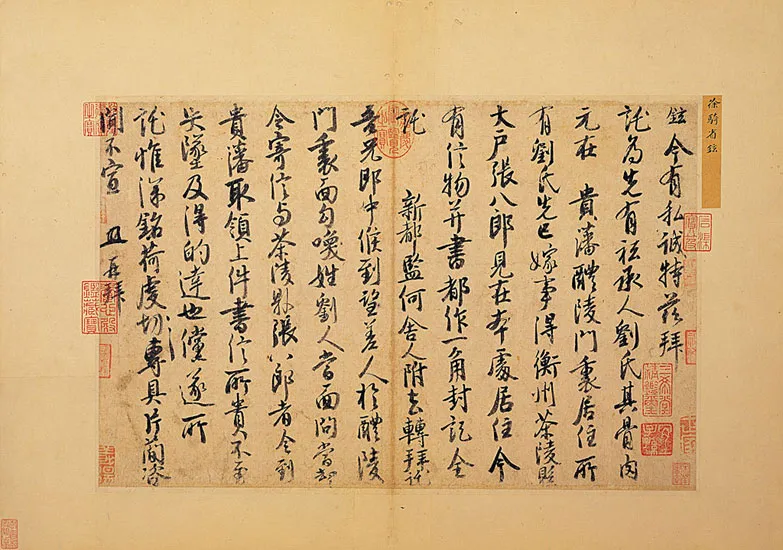 徐騎省鉉
鉉今有私誠特茲拜
託為先有祗承人劉氏其骨肉
元在 貴藩醴陵門裏居住所
有劉氏先已嫁事得衡州茶陵縣
大戶張八郎見在本處居住今
有信物并書都作一角封記全
託 新都監何舍人附去轉拜託
吾兄郎中候到望差人於醴陵
門裏面勾喚姓劉人當面問當却
令寄信與茶陵縣張八郎者令到
貴藩取領上件書信所貴不至
失墜及得的達也儻遂所
託惟深銘荷虔切專具片簡咨
聞不宣 且再拜